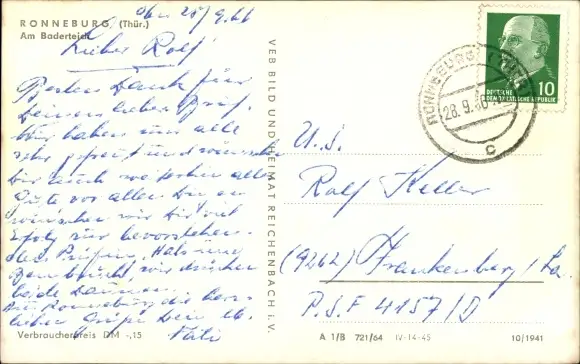 RONNEBURG (Thür.)
Am Baderteich
den 28/9.66
Lieber Rolf
Besten Dank für
Deinen lieben Brief.
Wir haben uns alle
sehr gefreut und wünschen
Dir auch weiterhin alles
Gute vor allem
wünschen wir Dir viel
Erfolg zur bevorstehen-
den Prüfung. Hals und
Beinbruch, wir drücken
beide Daumen.
Aus Ronneburg die herz-
lichen Grüße Dein
Verbraucherpreis DM -,15
VEB BILD UND HEIMAT REICHENBACH I. V.
DEUTSCHE
DEMOKRATISCHE REPUBLIK
10
RONNEBURG (THÜR)
28.9.
c
U.S.
Rolf Keller
(9262) Frankenberg/Sa.
P.S.F 4157/D
A 1/B 721/64 IV-14-45 10/1941